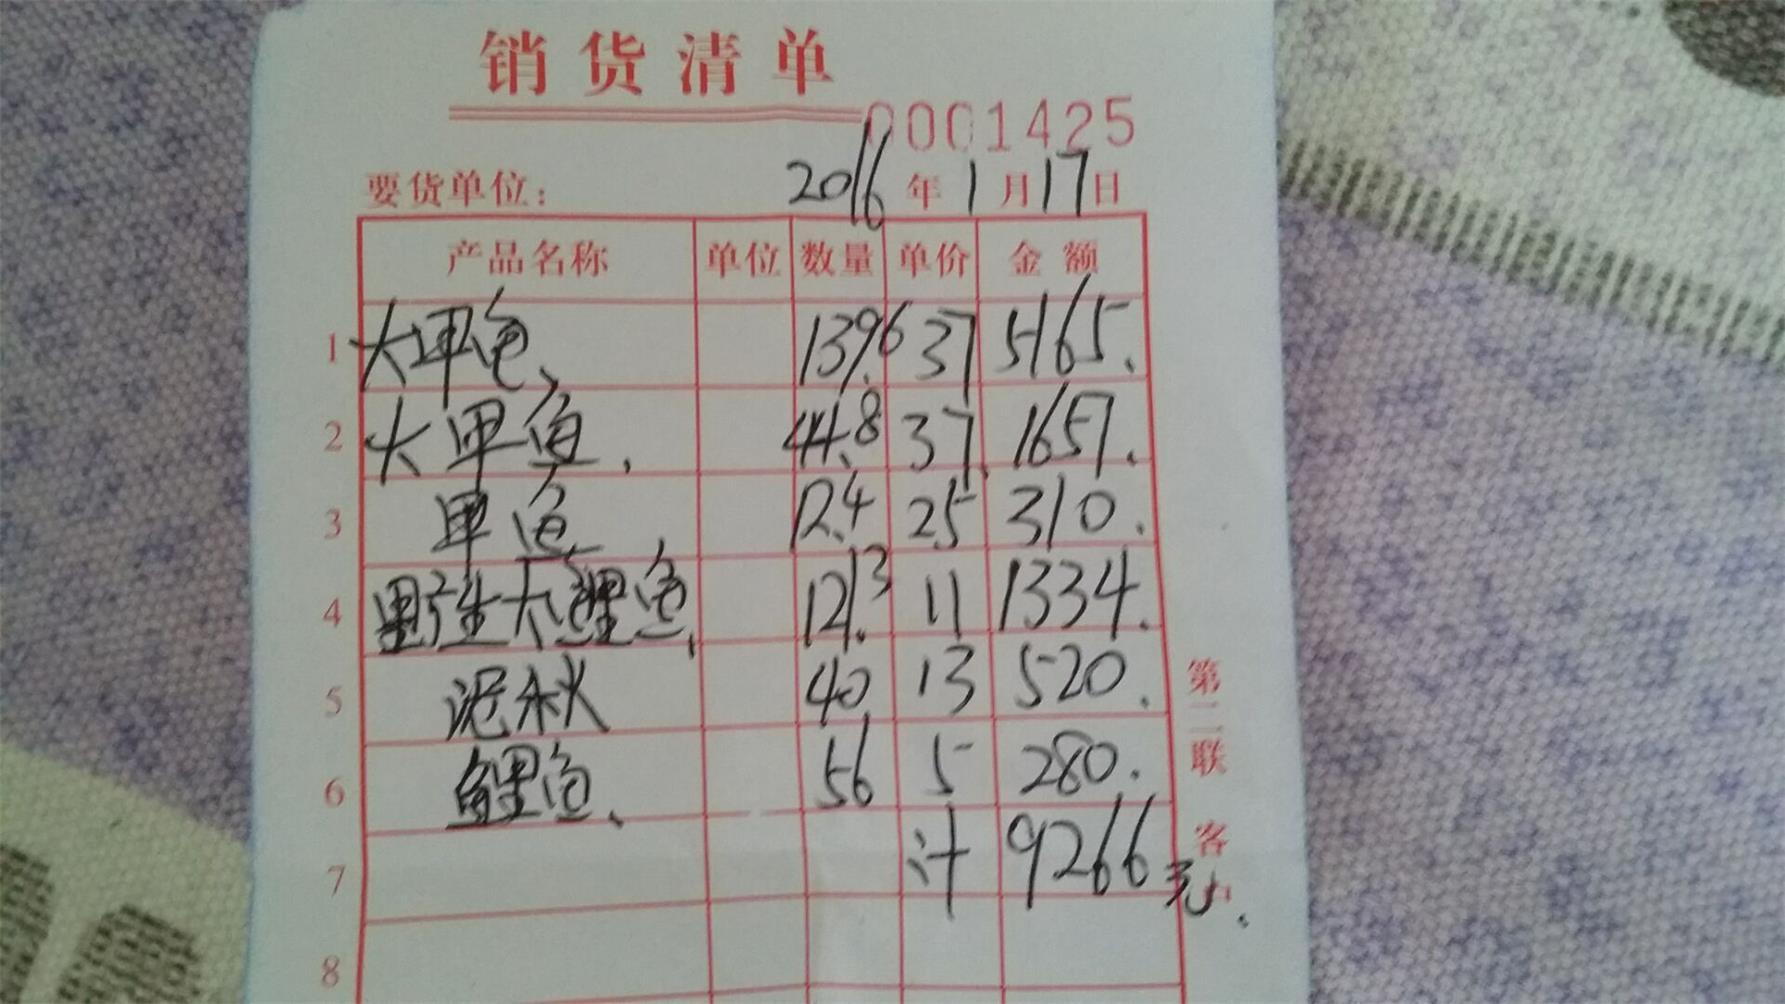 销货清单
0001425
要货单位： 2016年1月17日
产品名称 单位 数量 单价 金额
1 大甲鱼、 139.6 37 5165.
2 大甲鱼. 44.8 37 1657.
3 甲鱼 12.4 25 310.
4 野生大鲤鱼、 121.3 11 1334.
5 泥秋 40 13 520.
6 鲤鱼、 56 5 280.
7 计 9266元.
8
第二联 客户